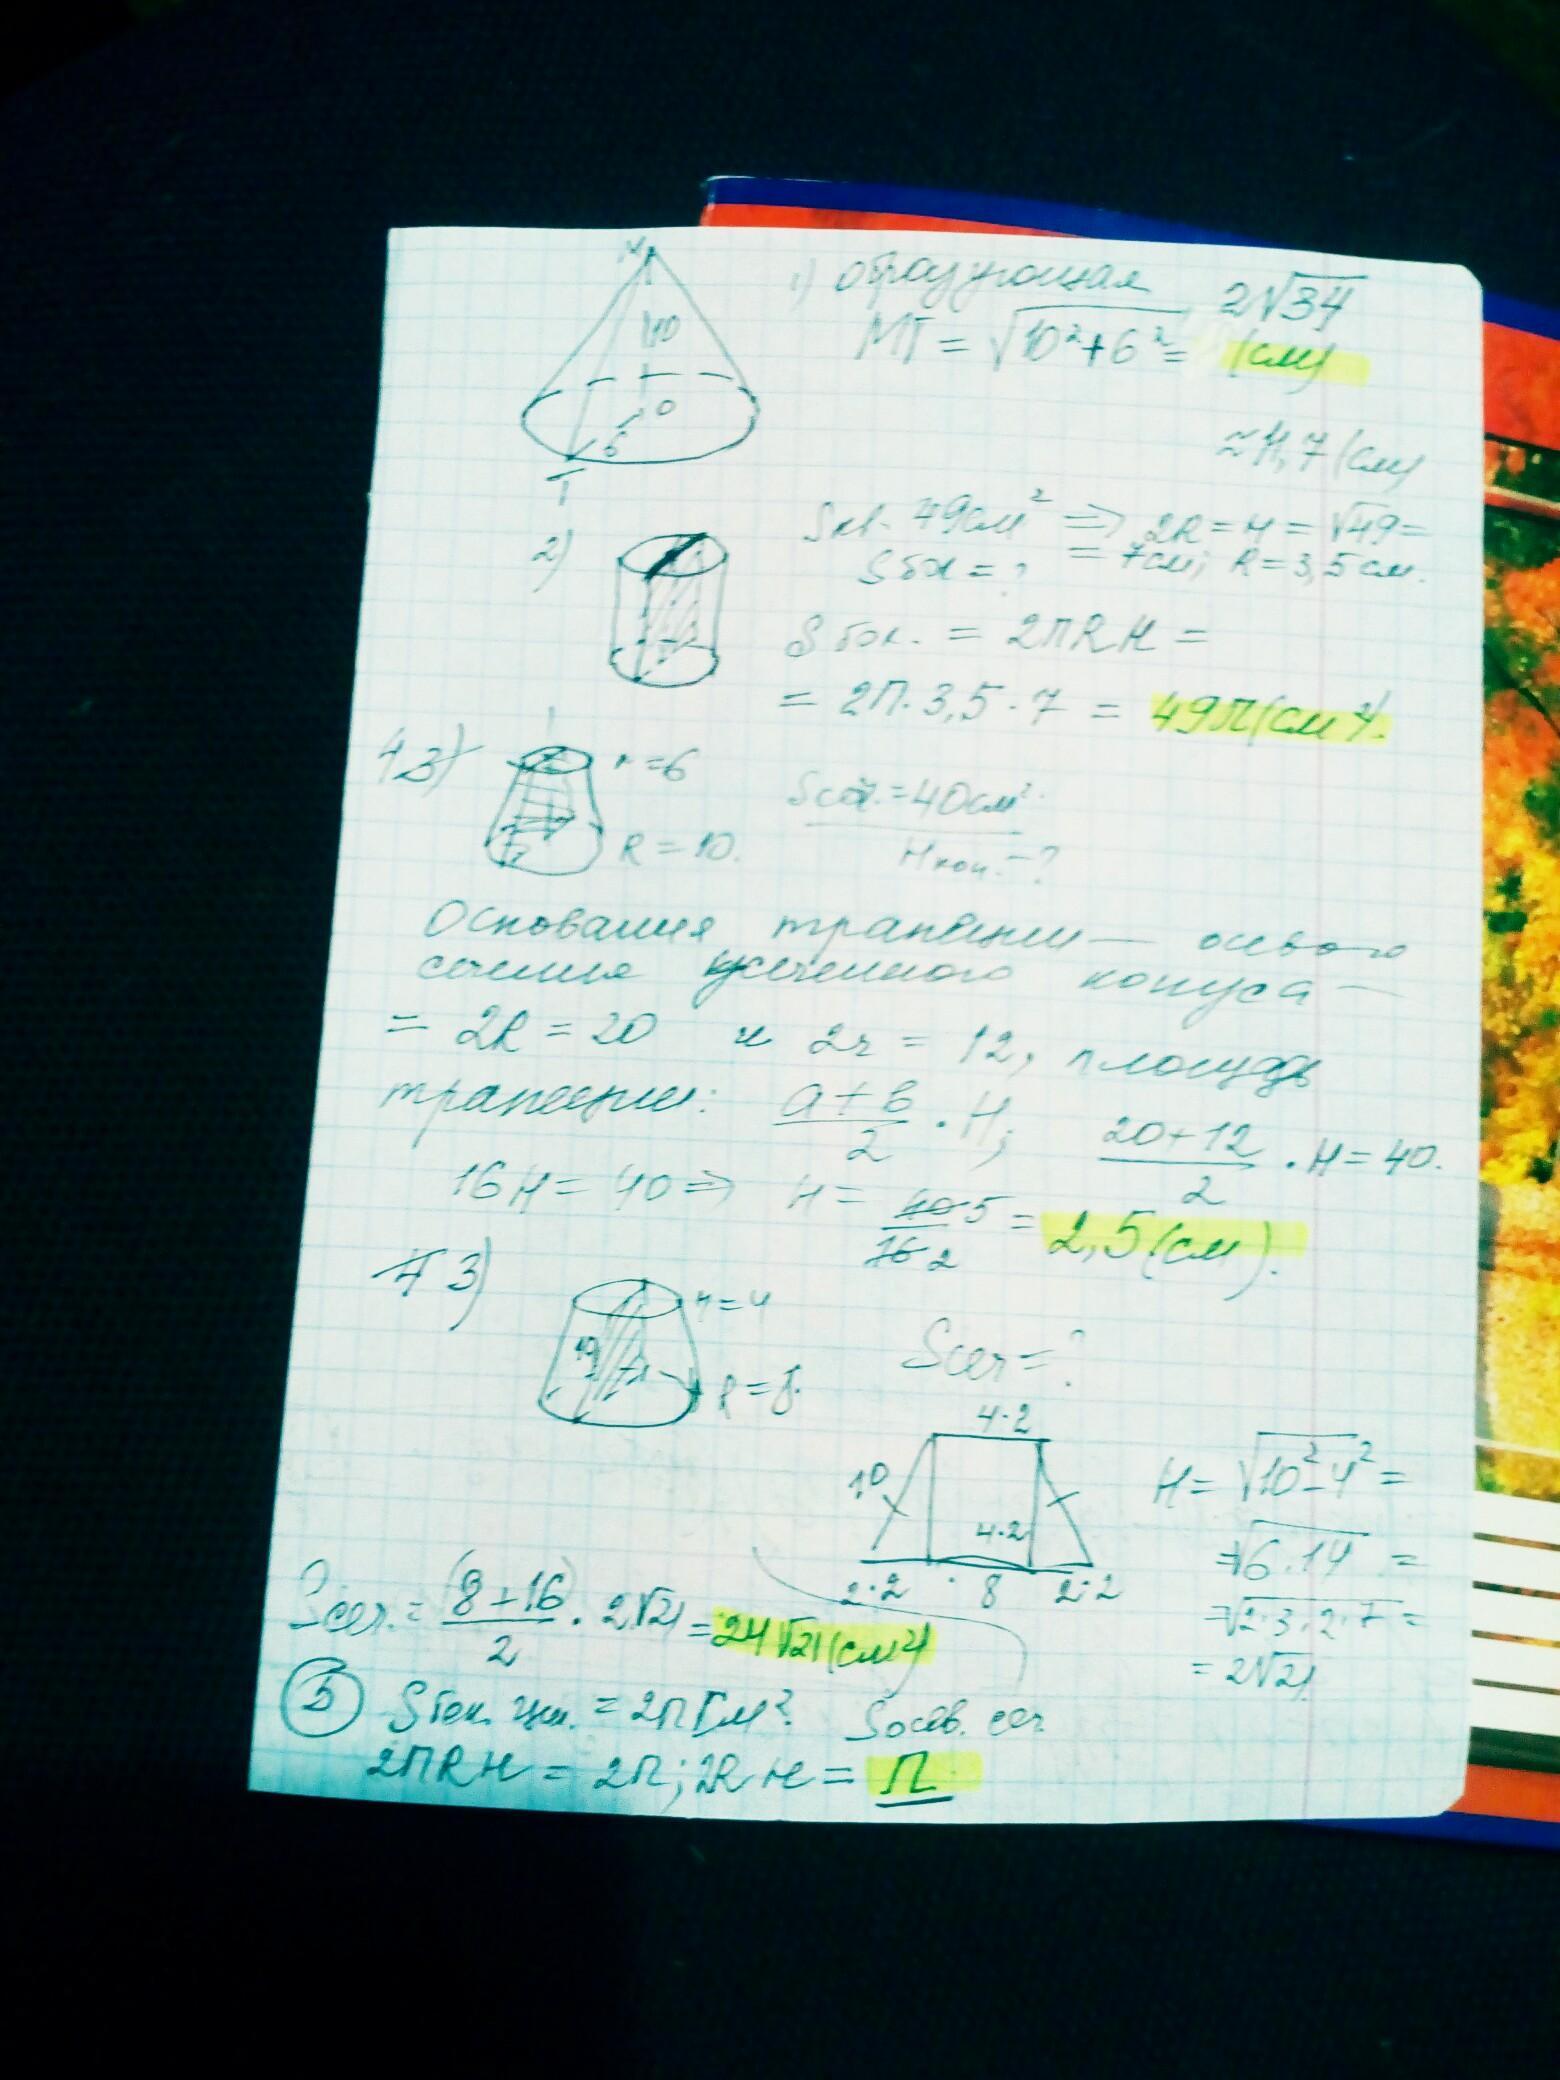 М
10
О
6
Т
1) образующая
МТ = √10²+6² = 2√34 (см)
≈ 11,7 (см)
2)
Sкв. 49см² => 2R = H = √49 =
= 7см; R = 3,5 см.
Sбок = ?
Sбок. = 2ПRH =
= 2П·3,5·7 = 49П(см²).
4)
r = 6
R = 10.
Sсеч. = 40см².
Hкон. - ?
Основания трапеции — осевого
сечения усеченного конуса —
= 2R = 20 и 2r = 12, площадь
трапеции: a+b/2 · H; 20+12/2 · H = 40.
16H = 40 => H = 40 5/16 2 = 2,5(см).
3)
r = 4
R = 8.
Sсеч = ?
4·2
10
4·2
2·2 · 8 2·2
H = √10²-4² =
= √6·14 =
= √2·3·2·7 =
= 2√21.
Sсеч. = (8+16)/2 · 2√21 = 24√21(см²)
5 Sбок. цил. = 2П м². Sосев. сеч
2ПRH = 2П; 2RH = П